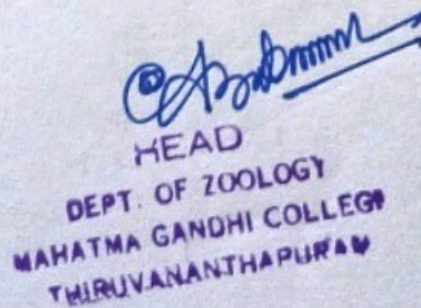 HEAD
DEPT. OF ZOOLOGY
MAHATMA GANDHI COLLEGE
THIRUVANANTHAPURAM